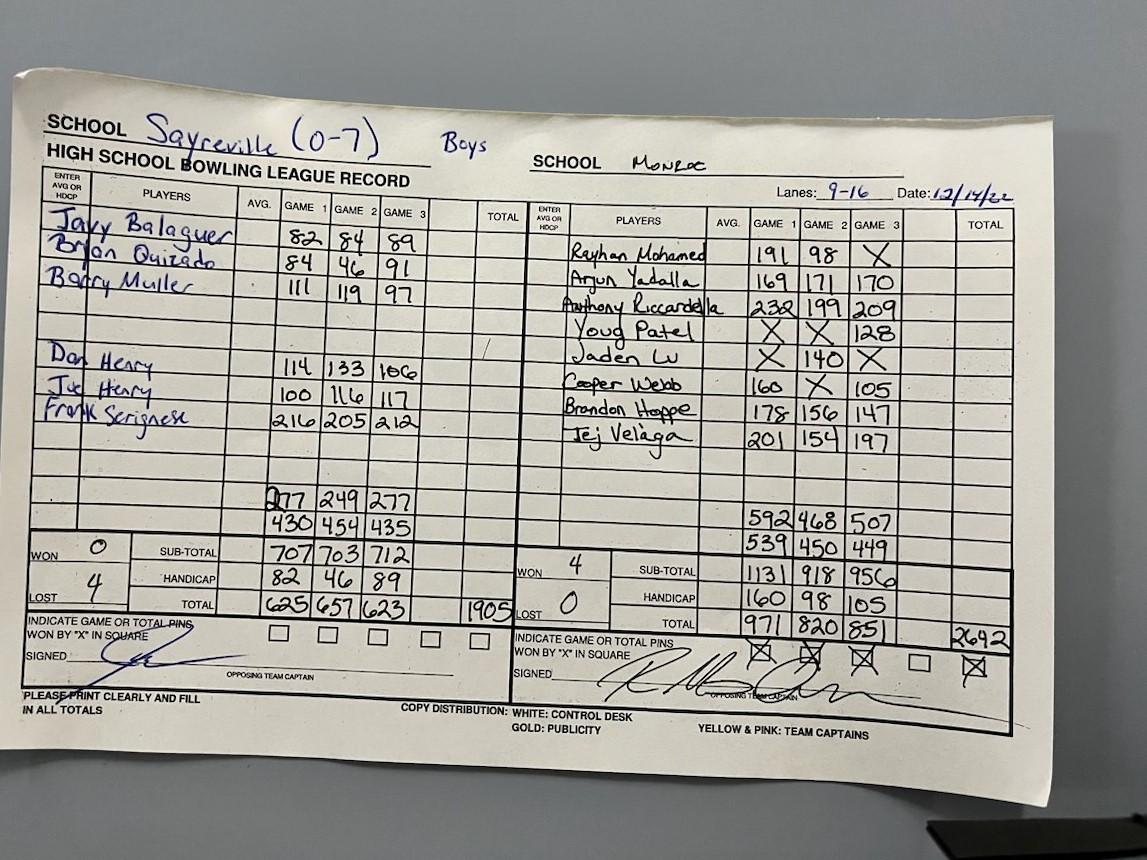 SCHOOL Sayreville (0-7) Boys SCHOOL Monroe
HIGH SCHOOL BOWLING LEAGUE RECORD Lanes: 9-16 Date: 12/14/22
ENTER AVG OR HDCP PLAYERS AVG. GAME 1 GAME 2 GAME 3 TOTAL ENTER AVG OR HDCP PLAYERS AVG. GAME 1 GAME 2 GAME 3 TOTAL
Javy Balaguer 82 84 89 Rayhan Mohamed 191 98 X
Brian Quizado 84 46 91 Arjun Yadalla 169 171 170
Barry Muller 111 119 97 Anthony Riccardella 232 199 209
Youg Patel X X 128
Dan Henry 114 133 106 Jaden Lu X 140 X
Joe Henry 100 116 117 Cooper Webb 160 X 105
Frank Scrignese 216 205 212 Brandon Hoppe 178 156 147
Tej Velaga 201 154 197
277 249 277 592 468 507
430 454 435 539 450 449
WON 0 SUB-TOTAL 707 703 712 WON 4 SUB-TOTAL 1131 918 956
HANDICAP 82 46 89 HANDICAP 160 98 105
LOST 4 TOTAL 625 657 623 1905 LOST 0 TOTAL 971 820 851 2642
INDICATE GAME OR TOTAL PINS WON BY "X" IN SQUARE INDICATE GAME OR TOTAL PINS WON BY "X" IN SQUARE X X X X
SIGNED SIGNED
OPPOSING TEAM CAPTAIN OPPOSING TEAM CAPTAIN
PLEASE PRINT CLEARLY AND FILL
IN ALL TOTALS
COPY DISTRIBUTION: WHITE: CONTROL DESK
GOLD: PUBLICITY YELLOW & PINK: TEAM CAPTAINS